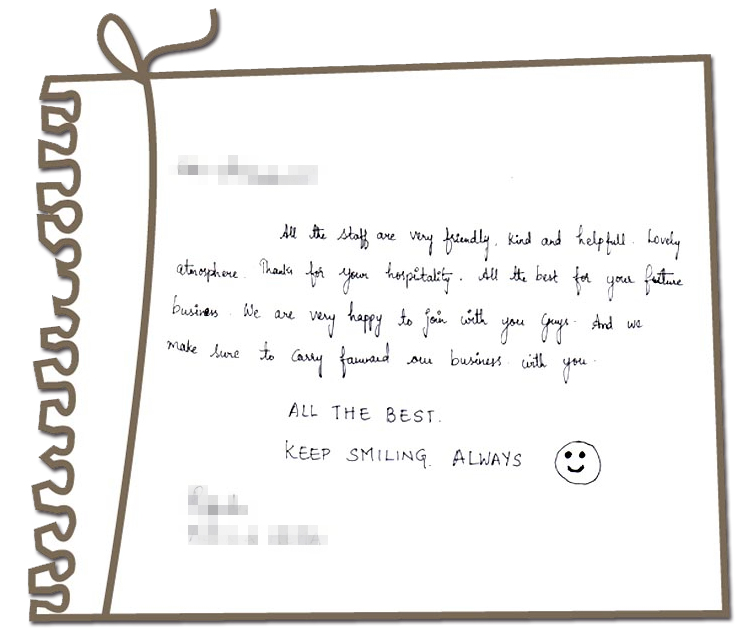 All the staff are very friendly, kind and helpfull. Lovely
atmosphere. Thanks for your hospitality. All the best for your future
business. We are very happy to join with you guys. And we
make sure to carry farward our business with you.
ALL THE BEST.
KEEP SMILING. ALWAYS